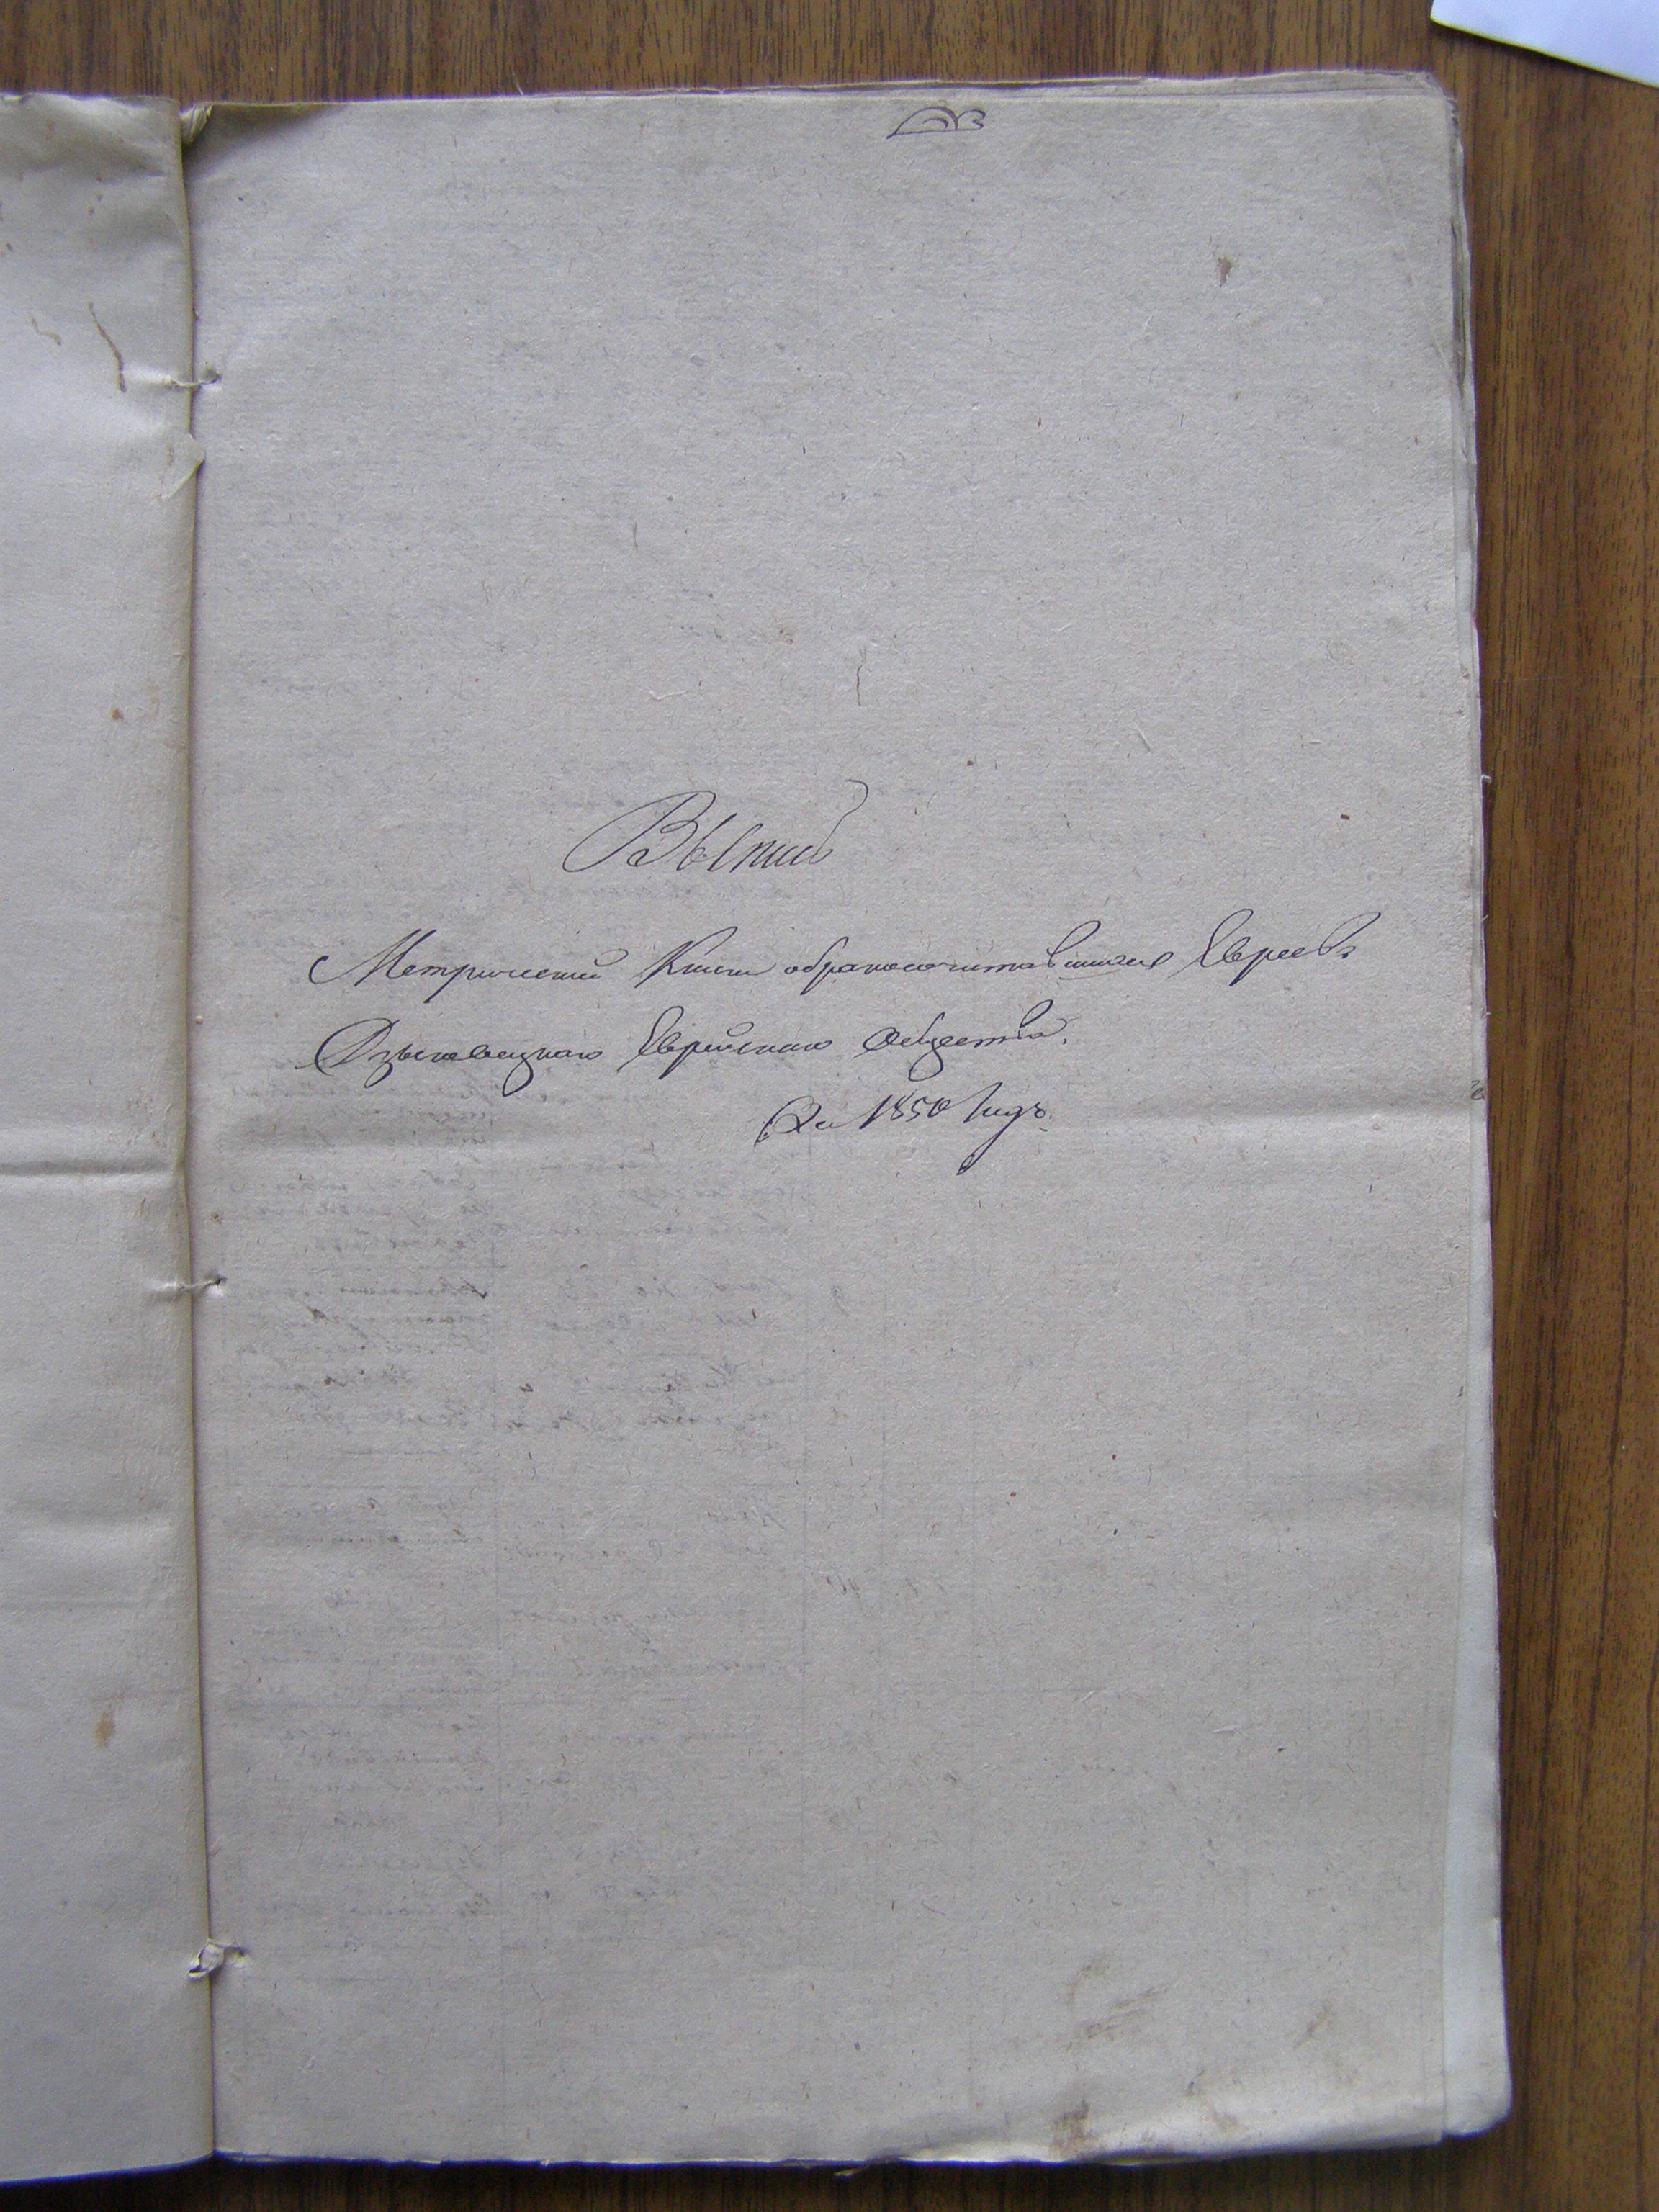 Выпись
Метрической Книги обракосочитавшихся Евреевъ
Еврейскаго Общества,
За 1850 Годъ.